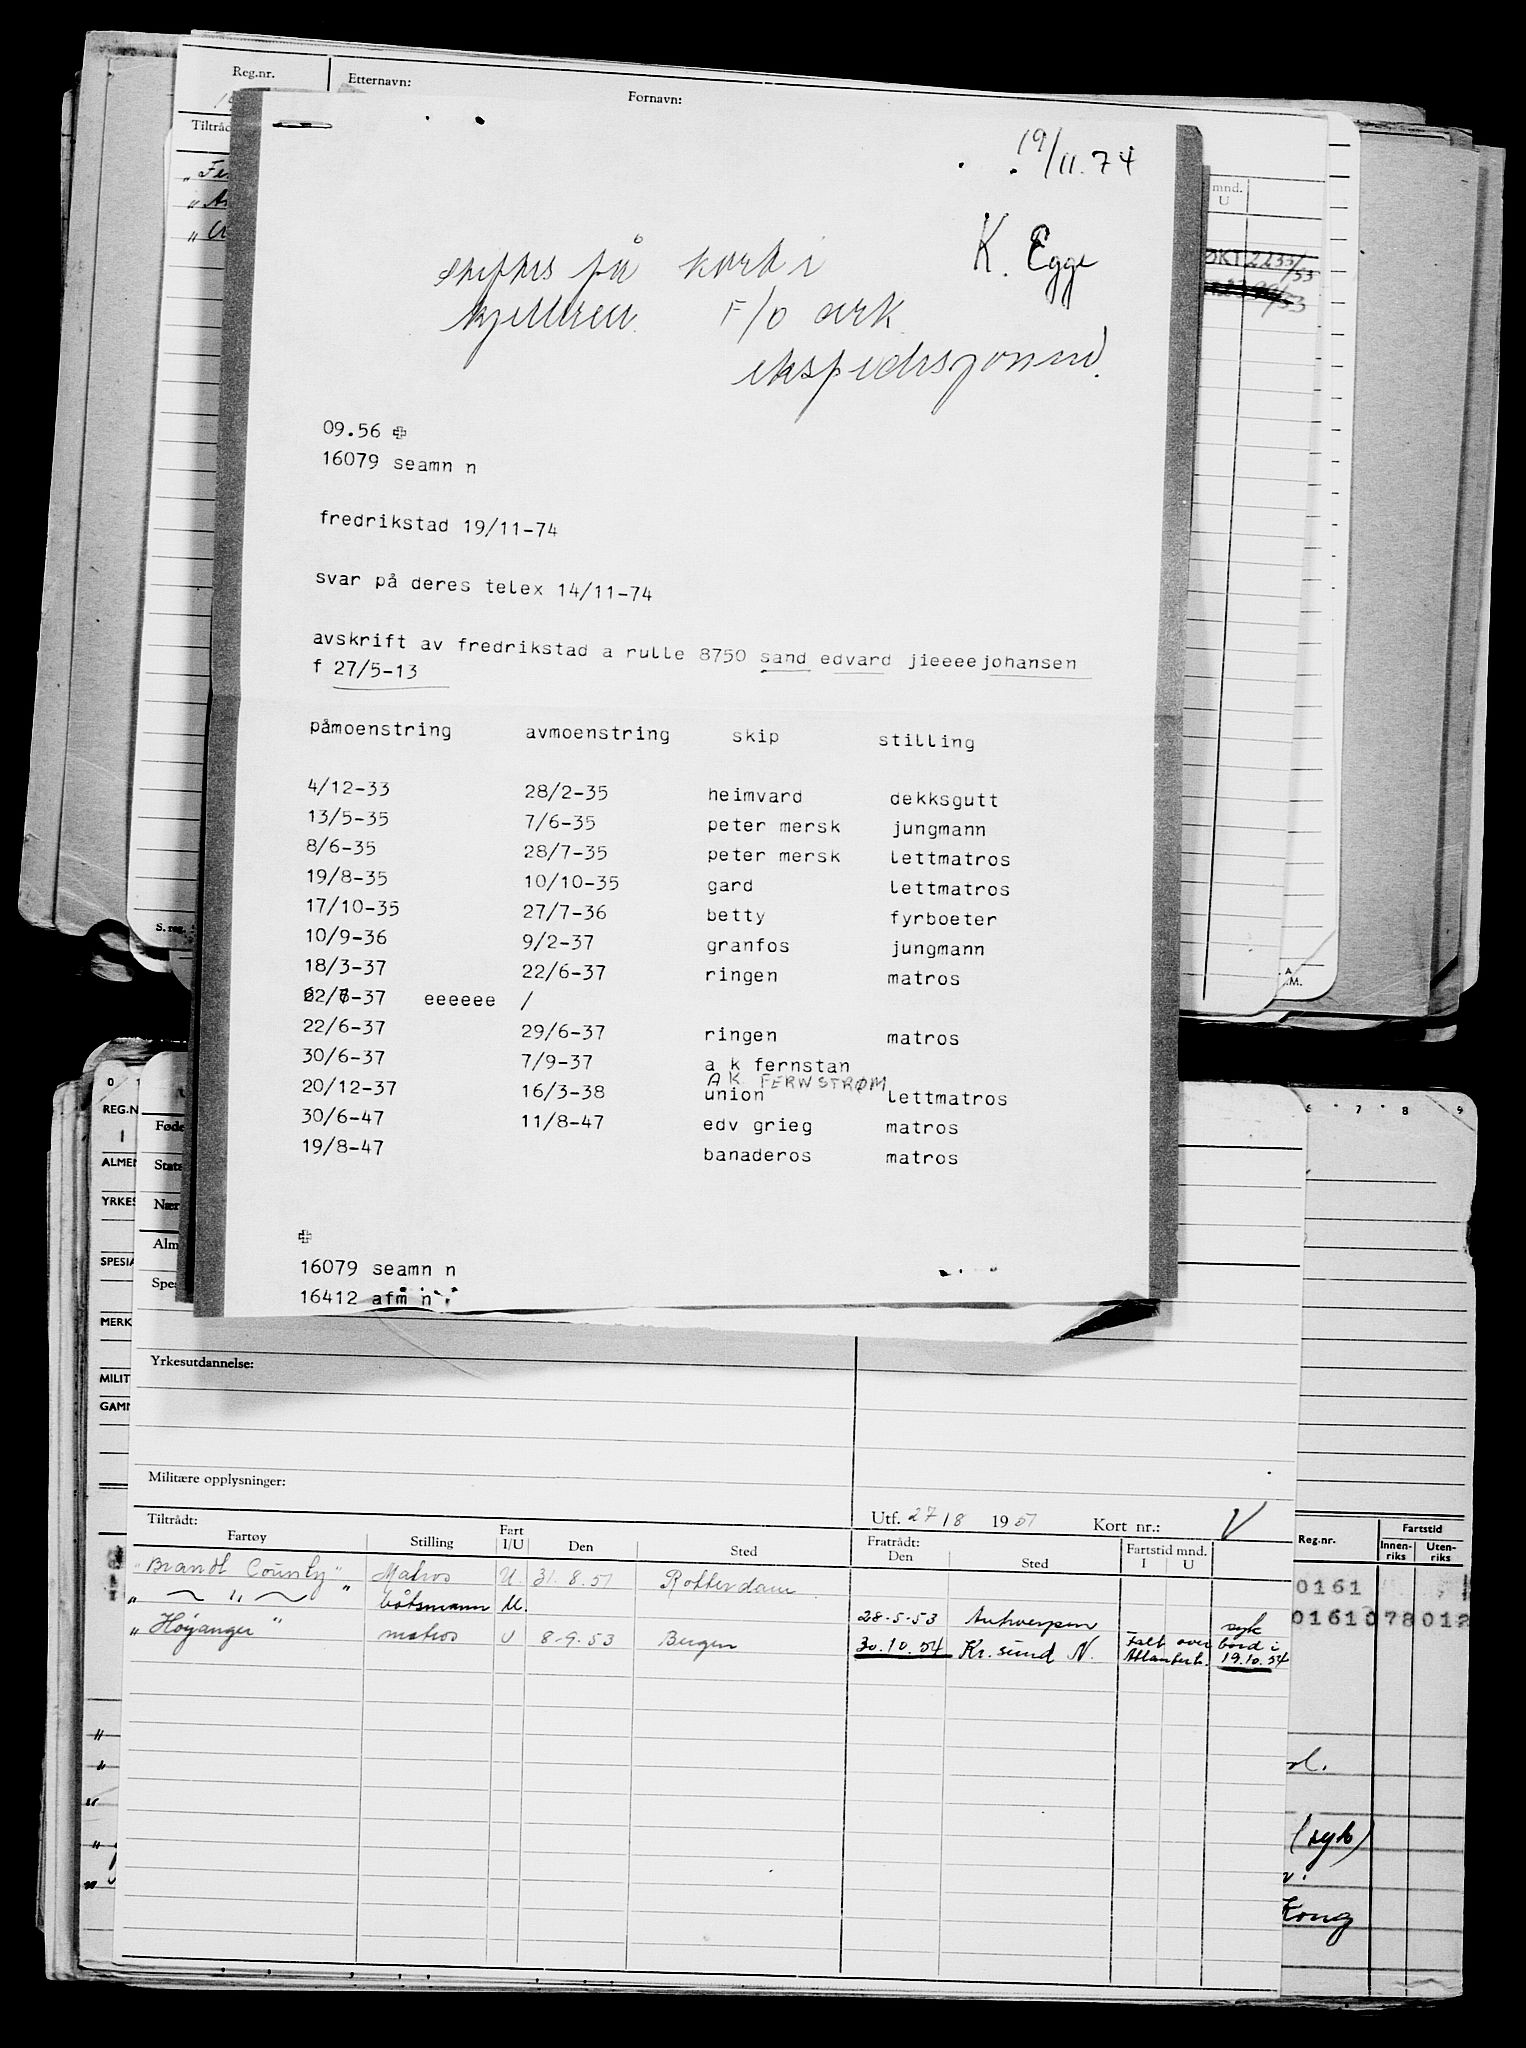 Reg.nr.
Etternavn:
Fornavn:
Tiltråd
mnd.
U
19/11.74
K. Egge
på kort i
F/O ark
09.56
16079 seamn n
fredrikstad 19/11-74
svar på deres telex 14/11-74
avskrift av fredrikstad a rulle 8750 sand edvard jieeeejohansen
f 27/5-13
påmoenstring avmoenstring skip stilling
4/12-33 28/2-35 heimvard dekksgutt
13/5-35 7/6-35 peter mersk jungmann
8/6-35 28/7-35 peter mersk lettmatros
19/8-35 10/10-35 gard lettmatros
17/10-35 27/7-36 betty fyrboeter
10/9-36 9/2-37 granfos jungmann
18/3-37 22/6-37 ringen matros
-37 eeeeee /
22/6-37 29/6-37 ringen matros
30/6-37 7/9-37 a k fernstan
A K. FERNSTRØM
20/12-37 16/3-38 union lettmatros
30/6-47 11/8-47 edv grieg matros
19/8-47 banaderos matros
16079 seamn n
16412 afm n
S. reg.
A
.M.
0
6 7 8 9
REG.N
Føde
ALMEN
Stats
YRKES
Nær
Alm
SPESIA
Spe
MERK
MILIT
GAMN
Yrkesutdannelse:
Militære opplysninger:
Utf. 27/8 1951 Kort nr.: V
Tiltrådt:
Fartøy Stilling Fart I/U Den Sted
Fratrådt: Den Sted Fartstid mnd. I U
Reg.nr. Fartstid
Innen-riks Uten-riks
"Brandt County" Matros U. 31.8.51 Rotterdam
" — " — " båtsmann U. 28-5-53 Antwerpen syk
" Höyanger " matros U 8-9.53 Bergen 30.10.54 Kr.sund N. Falt over bord i
Atlanterh. 19.10.54
0161
0161078012
(syk)
Kong